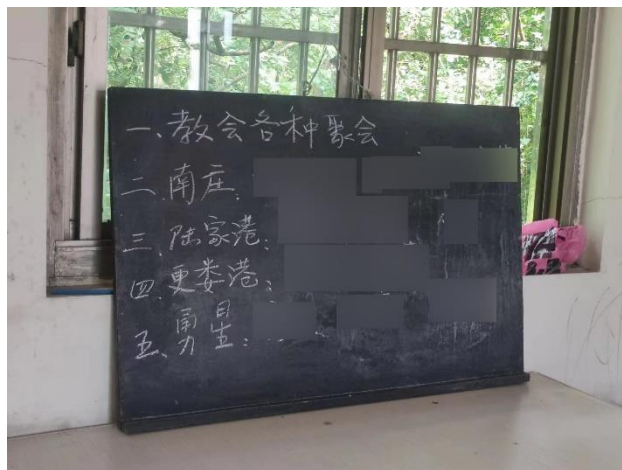 一、教会各种聚会
二、南庄:
三、陆家港:
四、更娄港:
五、勇星: